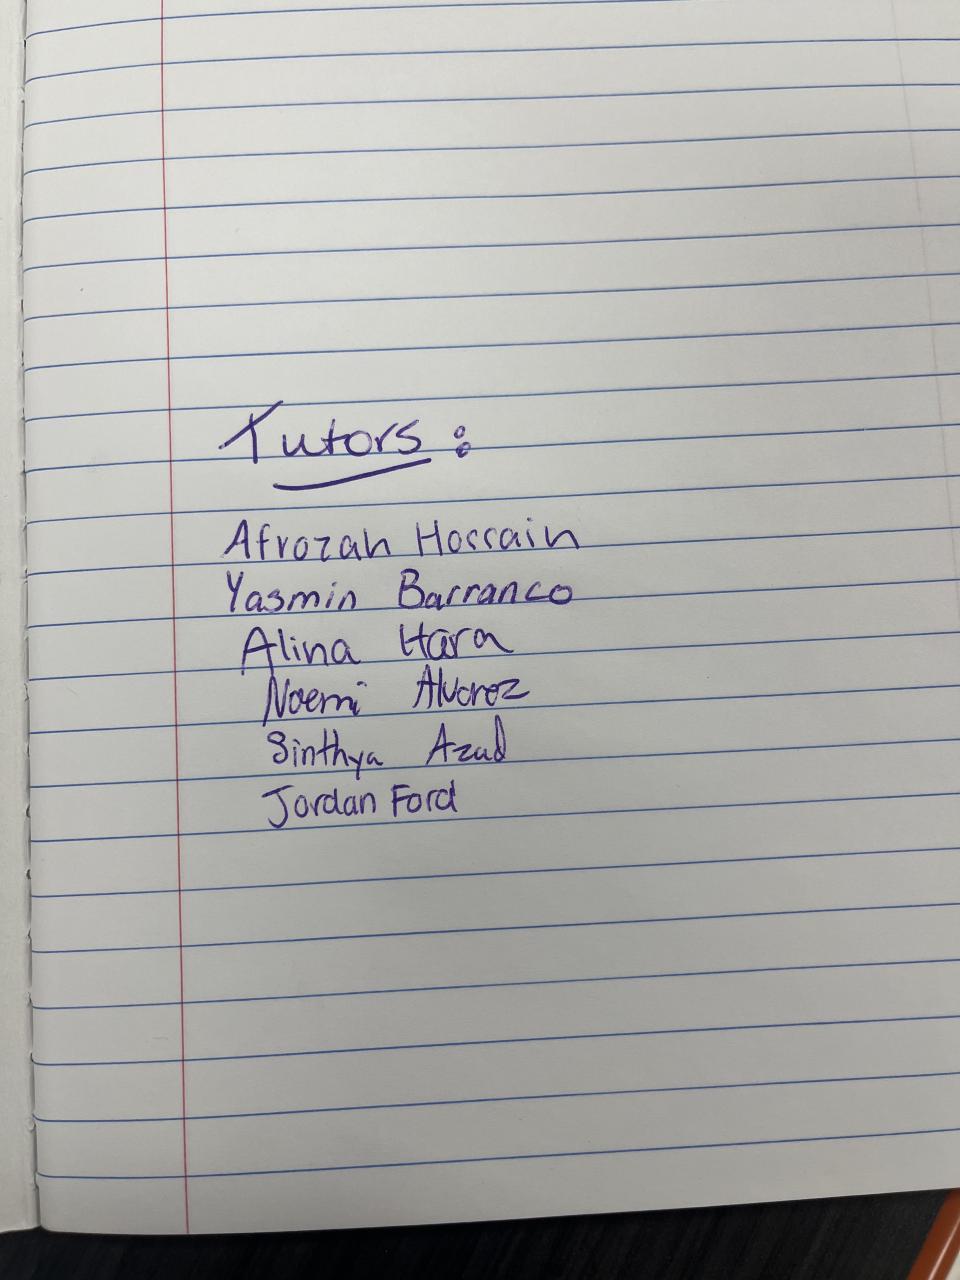 Tutors:
Afrozah Hossain
Yasmin Barranco
Alina Hara
Noemi Alvarez
Sinthya Azad
Jordan Ford